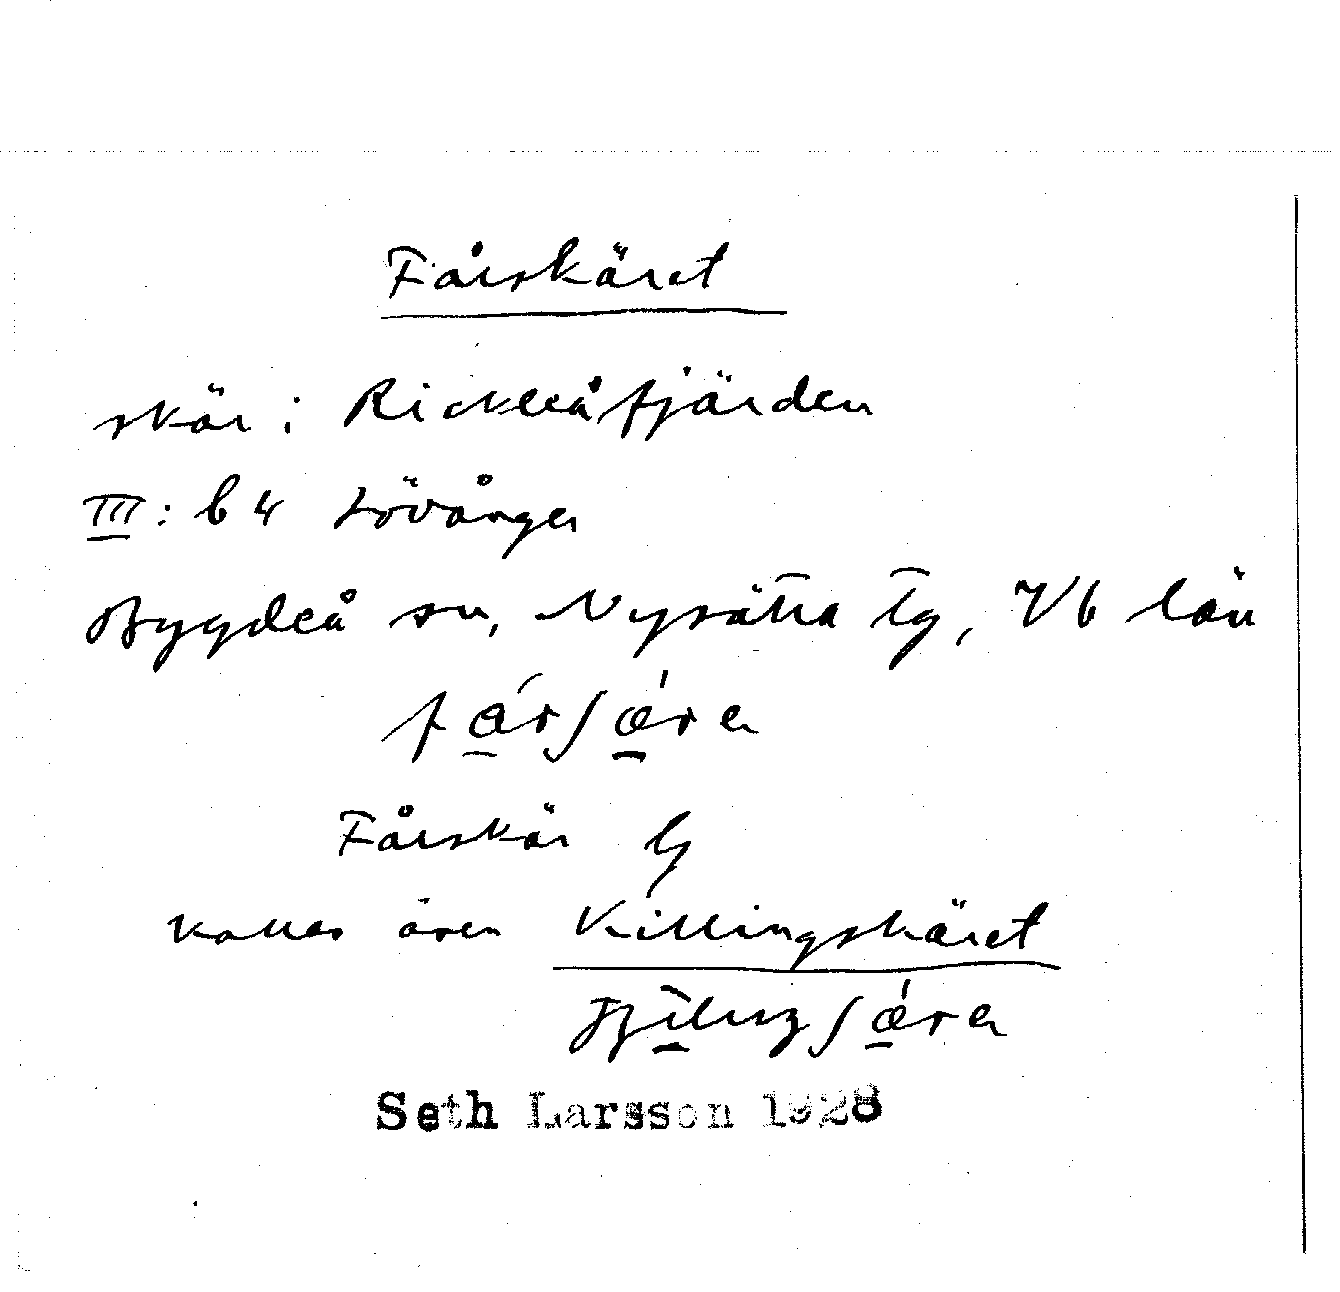 Fårskäret
skär i Rickleåfjärden
III: b 4 Lövånger
Bygdeå sn, Nysätra tg, Vb län
Fårskär
kallas även Killingskäret
Seth Larsson 1928